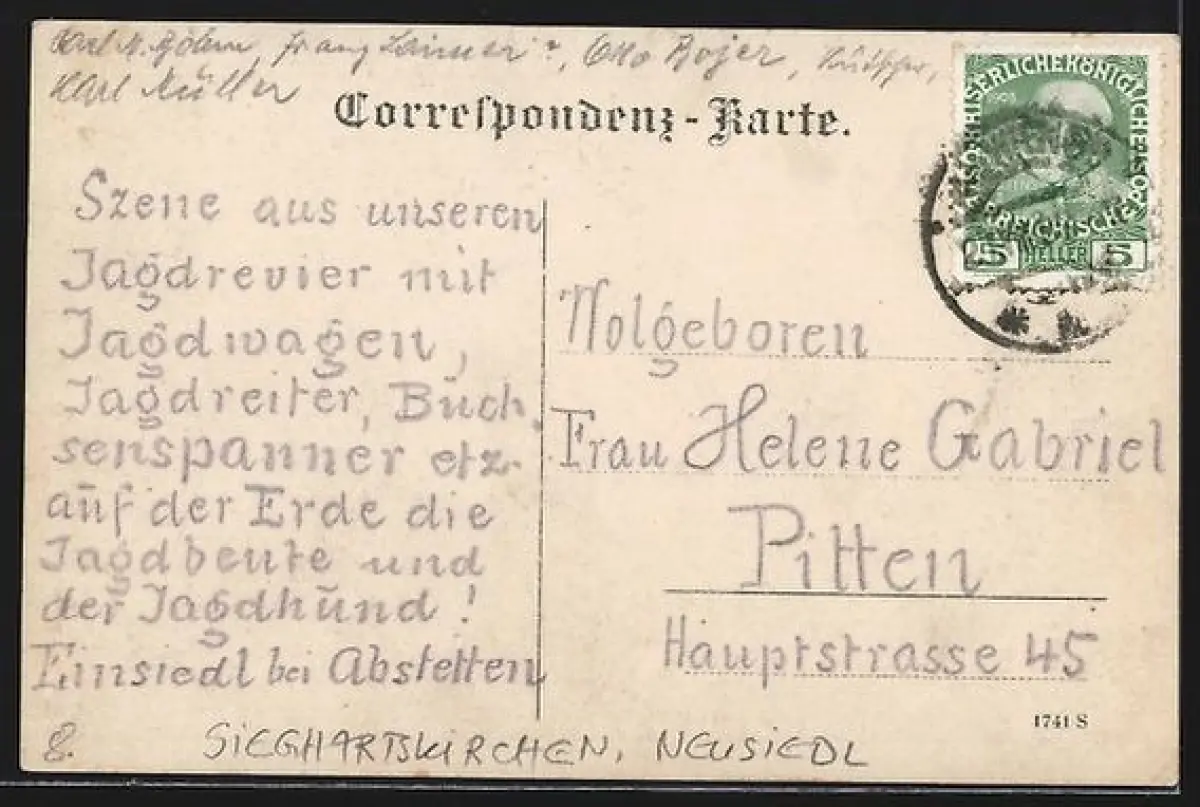 Karl Müller
Franz Otto Bojer,
Correspondenz-Karte.
KAISERLICHE KÖNIGLICHE ÖSTERREICHISCHE POST
5 HELLER 5
Szene aus unseren
Jagdrevier mit
Jagdwagen,
Jagdreiter, Büch
senspanner etz.
auf der Erde die
Jagdbeute und
der Jagdhund!
Einsiedl bei Abstetten
Wolgeboren
Frau Helene Gabriel
Pitten
Hauptstrasse 45
1741 S
8. SIEGHARTSKIRCHEN, NEUSIEDL